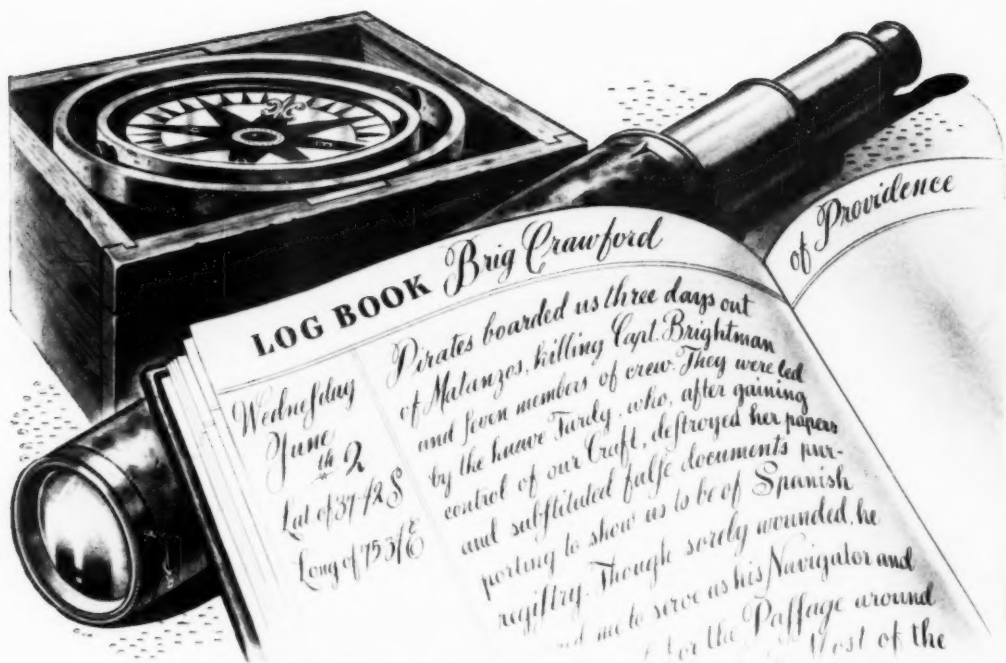 LOG BOOK Brig Crawford
of Providence
Wednesday
June
th 2
Lat of 37-12 S
Long of 75 31 E
Pirates boarded us three days out
of Matanzos, killing Capt. Brightman
and ſeven members of crew. They were led
by the knave Tardy, who, after gaining
control of our Craft, deſtroyed her papers
and subſtituted falſe documents pur-
porting to show us to be of Spanish
regiſtry. Though sorely wounded, he
me to serve as his Navigator and
for the Paſſage around
Most of the